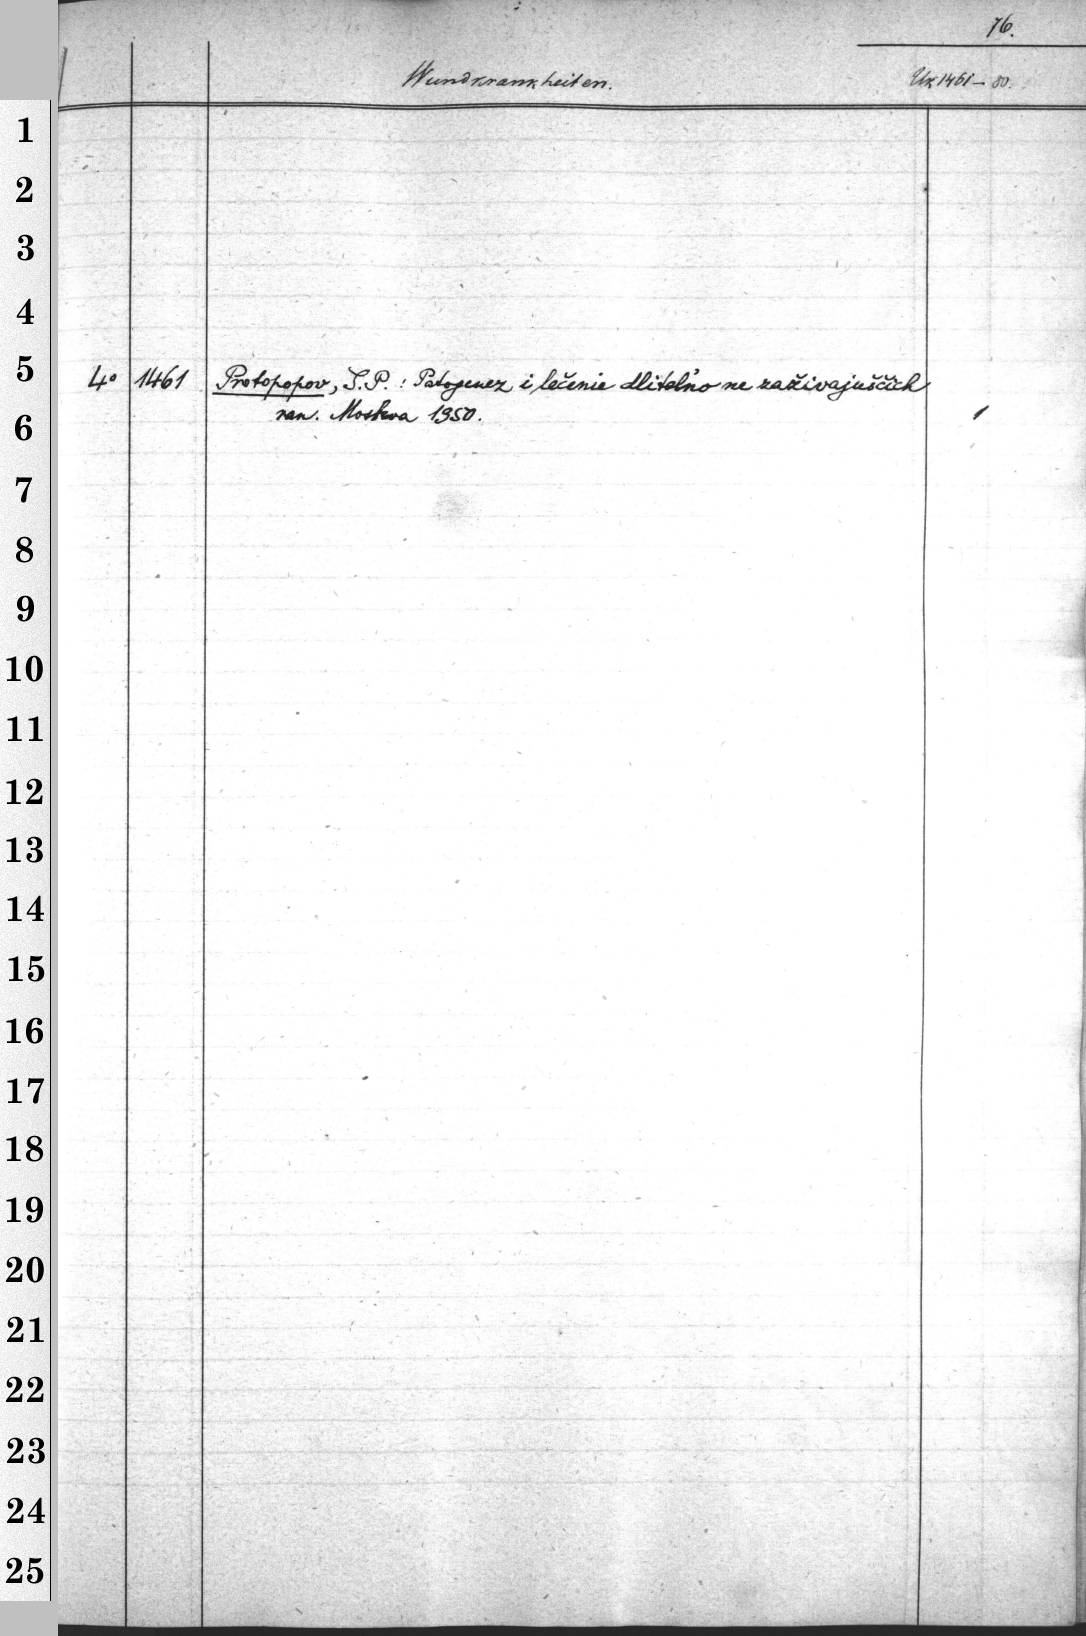 76.
Wundkrankheiten. Ux 1461-80.
1
2
3
4
5
4° 1461 Protopopov, S.P.: Patogenez i lečenie dlitel'no ne zaživajuščich
6
ran. Moskva 1950.
7
8
9
10
11
12
13
14
15
16
17
18
19
20
21
22
23
24
25